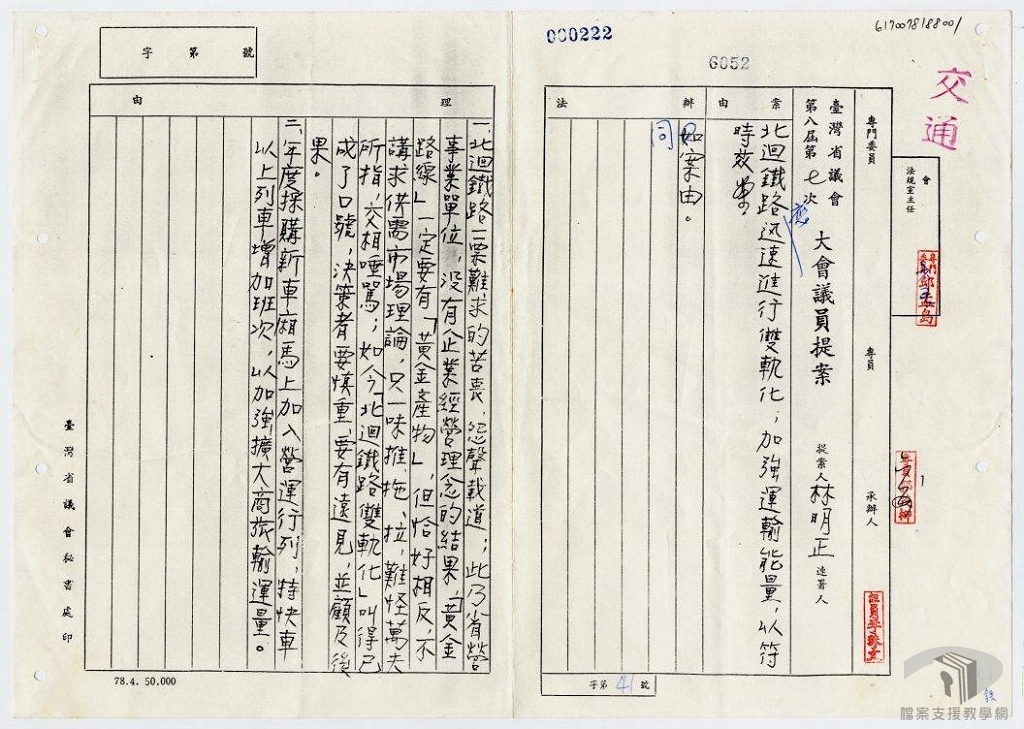 000222
6170078188001
6052
交通
會
法規室主任
專門委員
專員
承辦人
臺灣省議會
第八屆第七次
大會議員提案
提案人 林明正 連署人
案由
北迴鐵路應迅速進行雙軌化；加強運輸能量，以符
時效
辦法
如案由。
同
字第 41 號
理由
一、北迴鐵路一票難求的苦衷，怨聲載道；此乃省營
事業單位，沒有企業經營理念的結果，「黃金
路線」一定要有「黃金產物」，但恰好相反，不
講求供需市場理論，只一味推、拖、拉，難怪萬夫
所指，交相唾罵；如今「北迴鐵路雙軌化」叫得已
成了口號，決策者要慎重，要有遠見，並顧及後
果。
二、年度採購新車廂馬上加入營運行列，特快車
以上列車增加班次，以加強擴大商旅輸運量。
字第號
臺灣省議會秘書處印
78.4. 50,000
鉄
檔案支援教學網